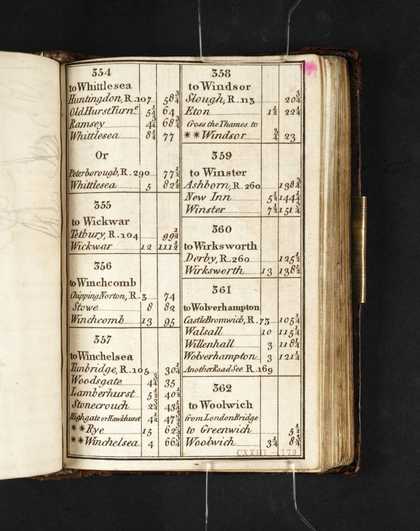 354
to Whittlesea
Huntingdon, R. 207 58¾
Old Hurst Turn.e 5¼ 64
Ramsey 4¾ 68¾
Whittlesea 8¼ 77
Or
Peterborough, R. 290 77½
Whittlesea 5 82½
355
to Wickwar
Tetbury, R. 104
Wickwar 12
356
to Winchcomb
Chipping Norton, R. 3 74
Stowe 8 82
Winchcomb 13 95
357
to Winchelsea
Tunbridge, R. 105
Woodsgate 35
Lamberhurst
Stonecrouch
Highgate or Hawkhurst
**Rye 15
**Winchelsea 4
358
to Windsor
Slough, R. 113 20¾
Eton 1½ 22¼
Cross the Thames to
**Windsor ¾ 23
359
to Winster
Ashborn, R. 260
New Inn
Winster
360
to Wirksworth
Derby, R. 260
Wirksworth 13
361
to Wolverhampton
Castle Bromwich, R. 73
Walsall 10
Willenhall 3
Wolverhampton 3
Another Road See R. 169
362
to Woolwich
from London Bridge
to Greenwich
Woolwich
CXXIII